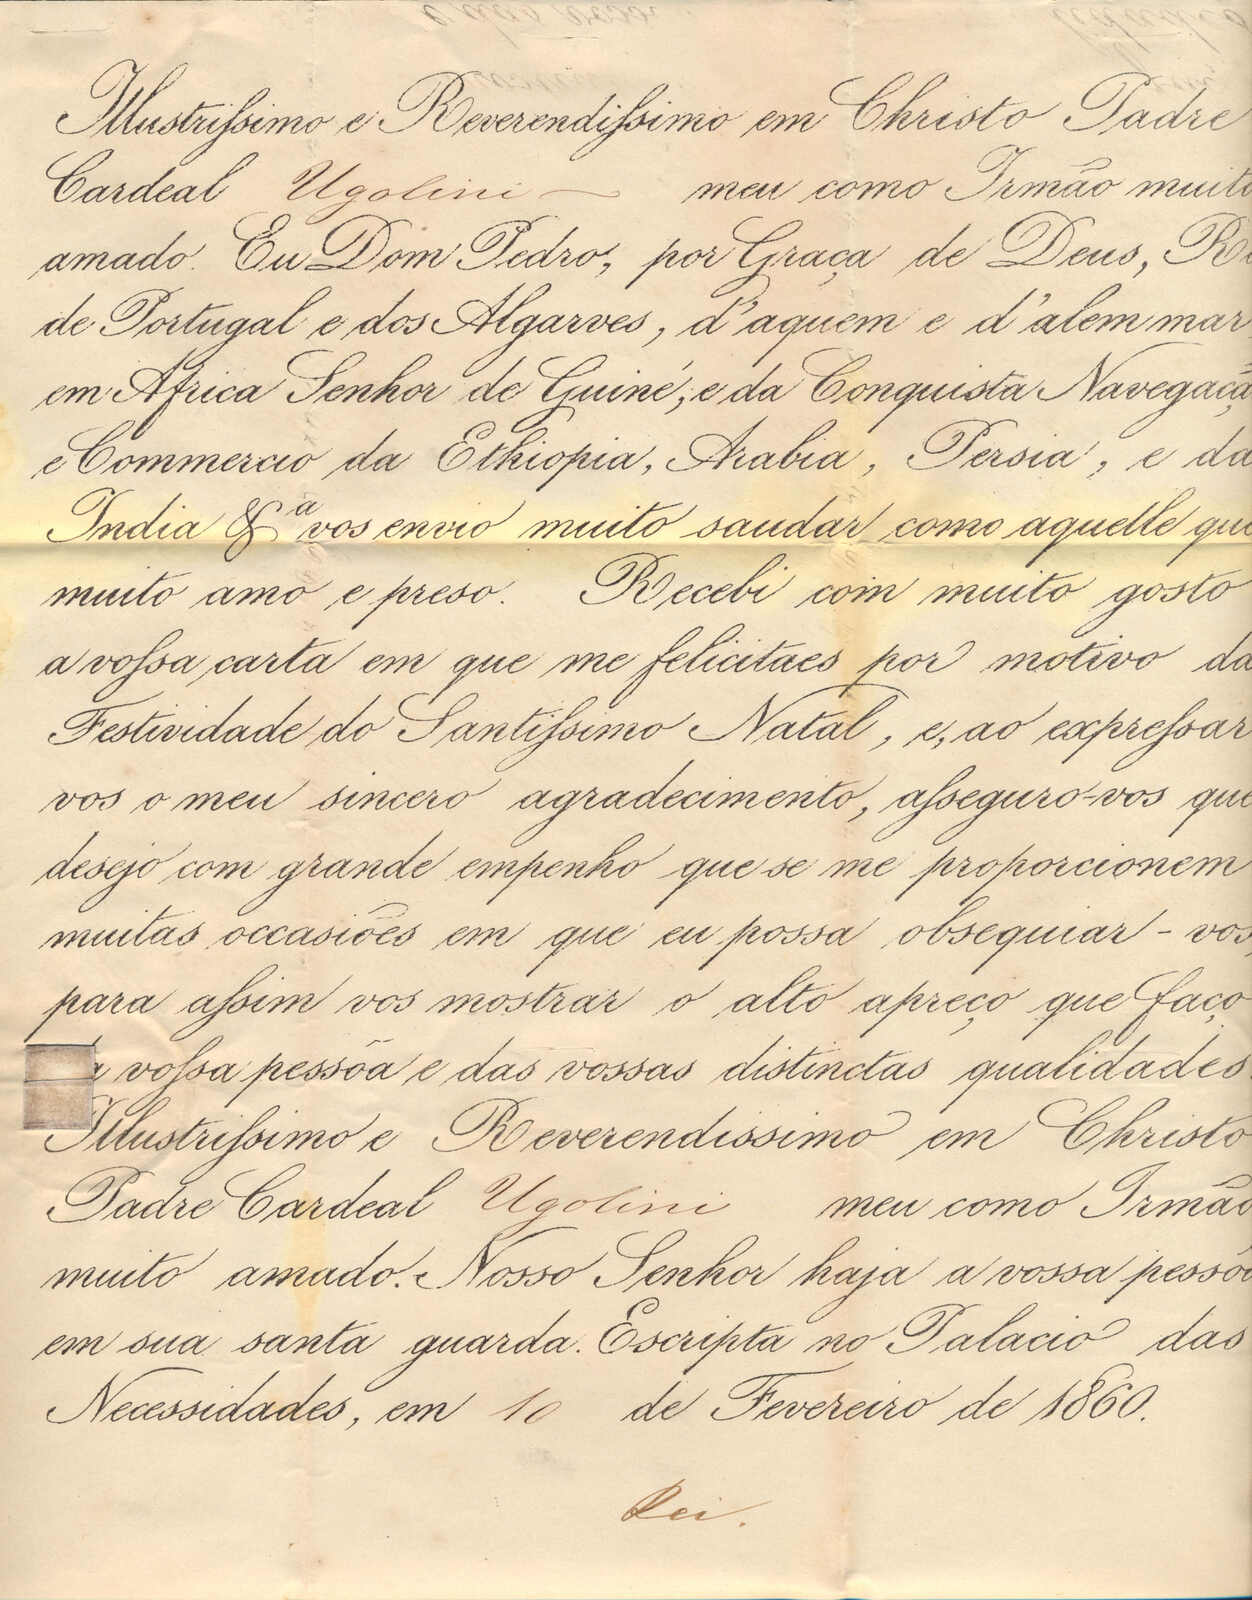 Illustrissimo e Reverendissimo em Christo Padre
Cardeal Ugolini meu como Irmão muito
amado. Eu Dom Pedro, por Graça de Deus, R
de Portugal e dos Algarves, d'aquem e d'alem mar
em Africa Senhor de Guiné, e da Conquista Navegaçã
e Commercio da Ethiopia, Arabia, Persia, e da
India &ª vos envio muito saudar como aquelle que
muito amo e preso. Recebi com muito gosto
a vossa carta em que me felicitaes por motivo da
Festividade do Santissimo Natal, e, ao expressar
vos o meu sincero agradecimento, asseguro-vos que
desejo com grande empenho que se me proporcionem
muitas occasiões em que eu possa obsequiar-vos,
para assim vos mostrar o alto apreço que faço
a vossa pessõa e das vossas distinctas qualidades.
Illustrissimo e Reverendissimo em Christo
Padre Cardeal Ugolini meu como Irmão
muito amado. Nosso Senhor haja a vossa pessõa
em sua santa guarda. Escripta no Palacio das
Necessidades, em 10 de Fevereiro de 1860.
Rei.